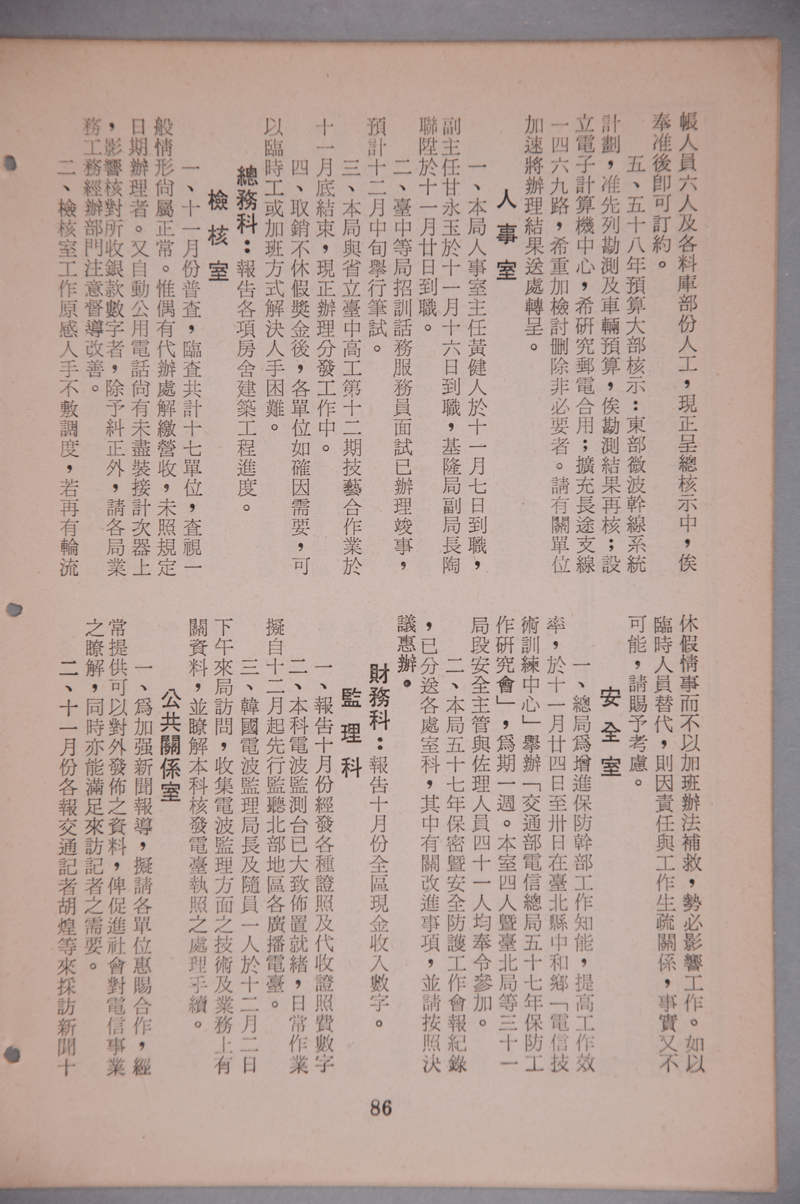 帳人員六人及各料庫部份人工，現正呈總核示中，俟
奉准後卽可訂約。
五、五十八年預算大部核示：東部微波幹線系統
計劃，准先列勘測及車輛預算，俟勘測結果再核；設
立電子計算機中心，希研究郵電合用；擴充長途支線
一四六九路，希重加檢討删除非必要者。請有關單位
加速將辦理結果送處轉呈。
人事室
一、本局人事室主任黃健人於十一月七日到職，
副主任甘永玉於十一月十六日到職，基隆局副局長陶
聯陞於十一月廿日到職。
二、臺中等局招訓話務服務員面試已辦理竣事，
預計十二月中旬舉行筆試。
三、本局與省立臺中高工第十二期技藝合作業於
十一月底結束，現正辦理分發工作中。
四、取銷不休假獎金後，各單位如確因需要，可
以臨時工或加班方式解決人手困難。
總務科：報告各項房舍建築工程進度。
檢核室
一、十一月份普查，臨查共計十七單位，查視一
般情形尙屬正常。惟偶有代辦處解繳營收，未照規定
日期辦理者。又自動公用電話尙有未盡裝接計次器上
，影響核對所收銀款數字者，除予糾正外，請各局業
務工務經辦部門注意督導改善。
二、檢核室工作原感人手不敷調度，若再有輪流
休假情事而不以加班辦法補救，勢必影響工作。如以
臨時人員替代，則因責任與工作生疏關係，事實又不
可能，請賜予考慮。
安全室
一、總局爲增進保防幹部工作知能，提高工作效
率，於十一月廿四日至卅日在臺北縣中和鄉「電信技
術訓練中心」舉辦「交通部電信總局五十七年保防工
作研究會」，爲期一週。本室四人暨臺北局等三十一
局段安全主管與佐理人員四十一人均奉令參加。
二、本局五十七年保密暨安全防護工作會報紀錄
，已分送各處室科，其中有關改進事項，並請按照決
議惠辦。
財務科：報告十月份全區現金收入數字。
監理科
一、報告十月份經發各種證照及代收證照費數字
二、本科電波監測台已大致佈置就緒，日常作業
擬自十二月起先行監聽北部地區各廣播電臺。
三、韓國電波監理局長及隨員一人於十二月二日
下午來局訪問，收集電波監理方面之技術及業務上有
關資料，並瞭解本科核發電臺執照之處理手續。
公共關係室
一、爲加强新聞報導，擬請各單位惠賜合作，經
常提供可以對外發佈之資料，俾促進社會對電信事業
之瞭解，同時亦能滿足來訪記者之需要。
二、十一月份各報交通記者胡煌等來採訪新聞十
86